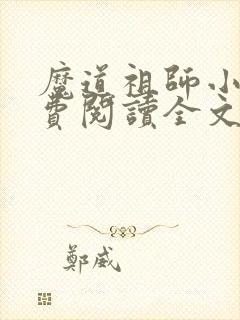 魔道祖師小
費閱讀全文
鄭威